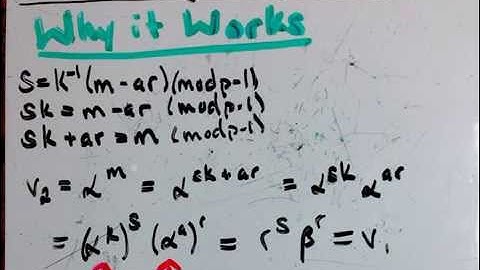 Why it Works
S=K⁻¹(m-ar)(modp-1)
sk=m-ar (modp-1)
sk+ar=m (modp-1)
v₂=α^m = α^(sk+ar) = α^(sk) α^(ar)
=(α^k)^s (α^a)^r = r^s β^r = v₁